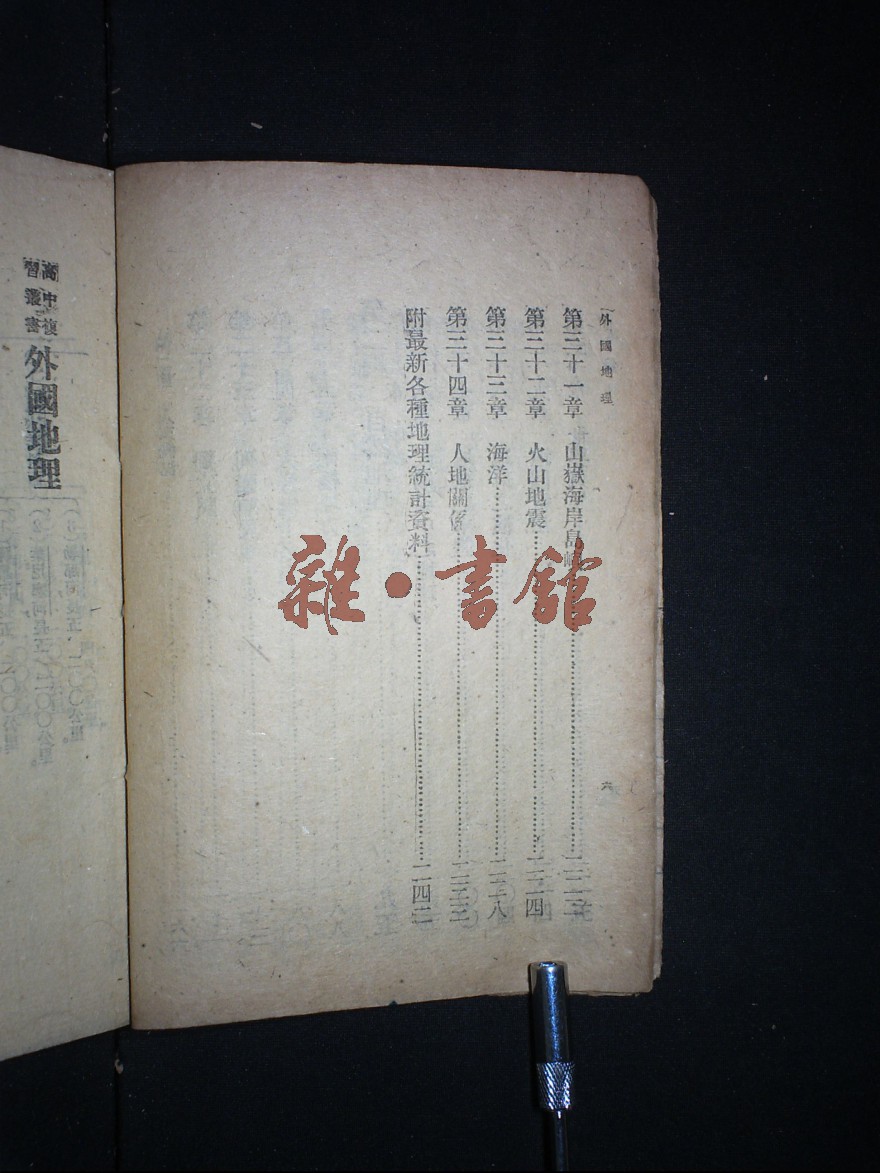 外國地理
六
第三十一章 山嶽海岸島
第三十二章 火山地震……二二四
第三十三章 海洋……二二八
第三十四章 人地關係……二三三
附最新各種地理統計資料……二四二
高中複
習叢書
外國地理
雜·書館